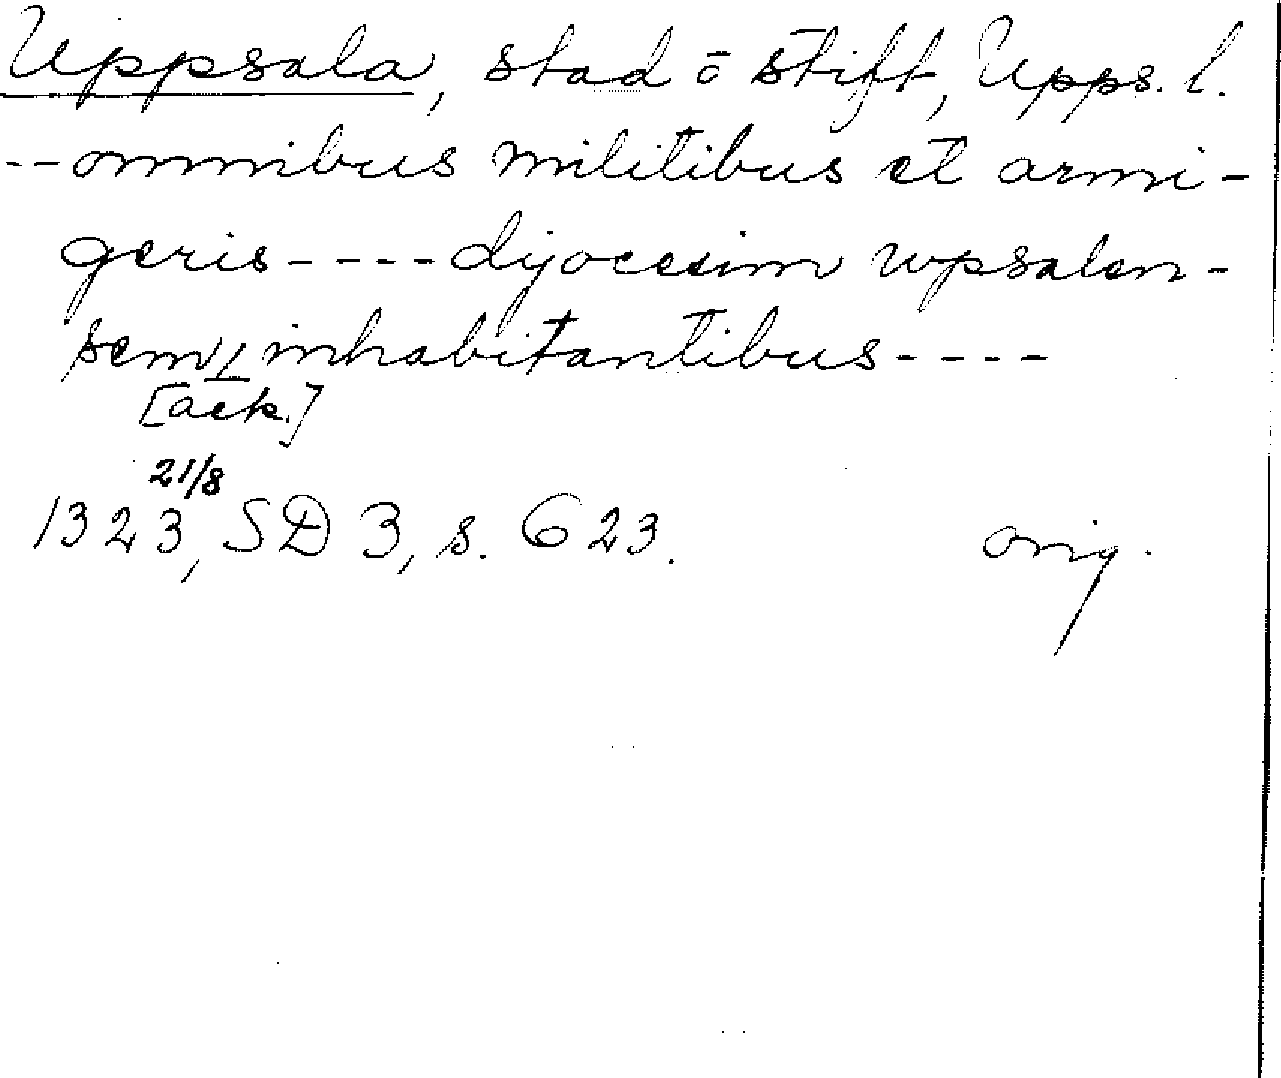 Uppsala, stad o stift, Upps. l.
-- omnibus militibus et armi-
geris ---- dyocesim wpsalen-
sem inhabitantibus ----
[ack.]
21/8
1323, SD 3, s. 623. orig.